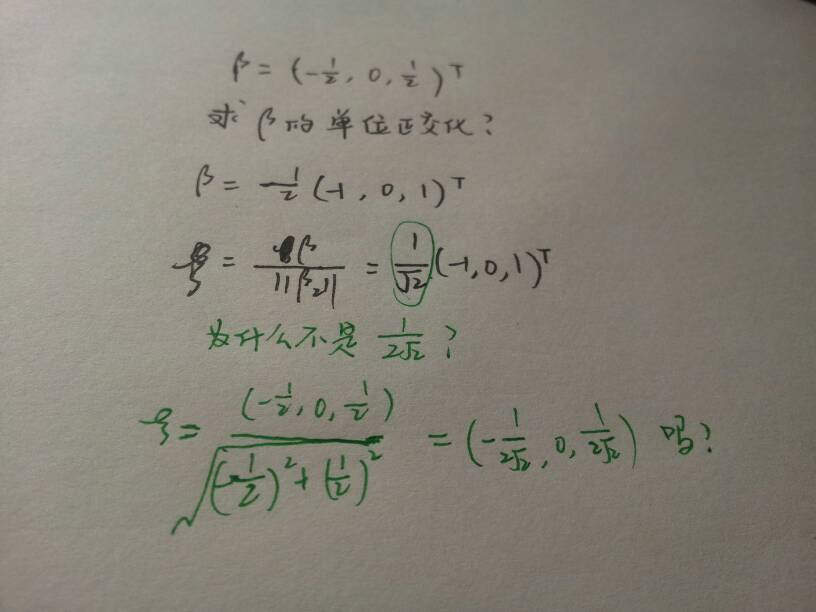 β = (-1/2, 0, 1/2)ᵀ
求 β 的单位正交化?
β = -1/2 (-1, 0, 1)ᵀ
ξ = β/||β₂|| = 1/√2 (-1, 0, 1)ᵀ
为什么不是 1/(2√2) ?
ξ = (-1/2, 0, 1/2)/√((-1/2)² + (1/2)²) = (-1/(2√2), 0, 1/(2√2)) 吗?